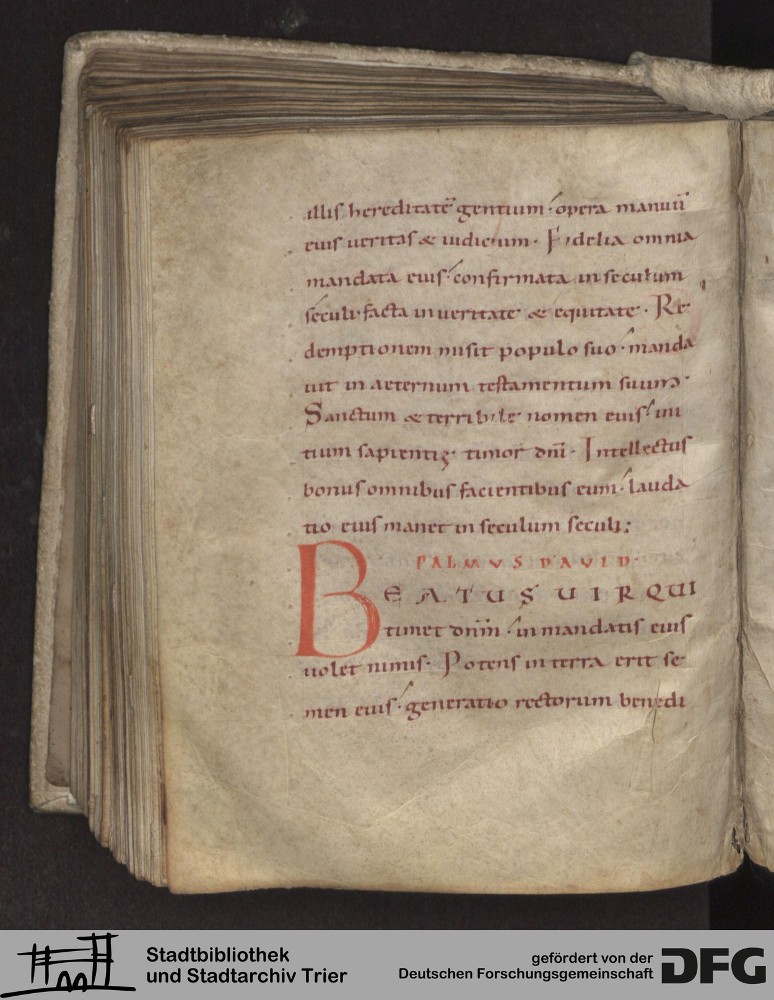 illis hereditatē gentium · opera manuū
eius ueritas & iudicium · Fidelia omnia
mandata eius · confirmata in seculum
seculi · facta in ueritate & equitate · Re
demptionem misit populo suo · manda
uit in aeternum testamentum suum ·
Sanctum & terribile nomen eius · ini
tium sapientię · timor dn̄i · Intellectus
bonus omnibus facientibus eum · lauda
tio eius manet in seculum seculi ;
PALMVS DAVID ·
BEATUS UIR QUI
timet dn̄m · in mandatis eius
uolet nimis · Potens in terra erit se
men eius · generatio rectorum benedi
Stadtbibliothek
und Stadtarchiv Trier
gefördert von der
Deutschen Forschungsgemeinschaft
DFG